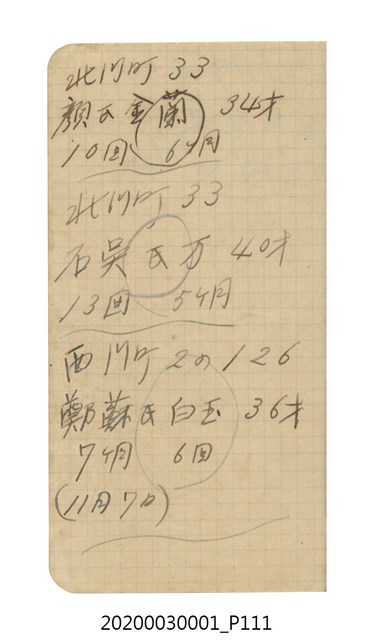 北川町 33
顏氏金蘭 34才
10回 6ヶ月
北川町 33
石吳氏万 40才
13回 5ヶ月
西川町 2の126
鄭蘇氏白玉 36才
7ヶ月 6回
(11月7日)
20200030001_P111